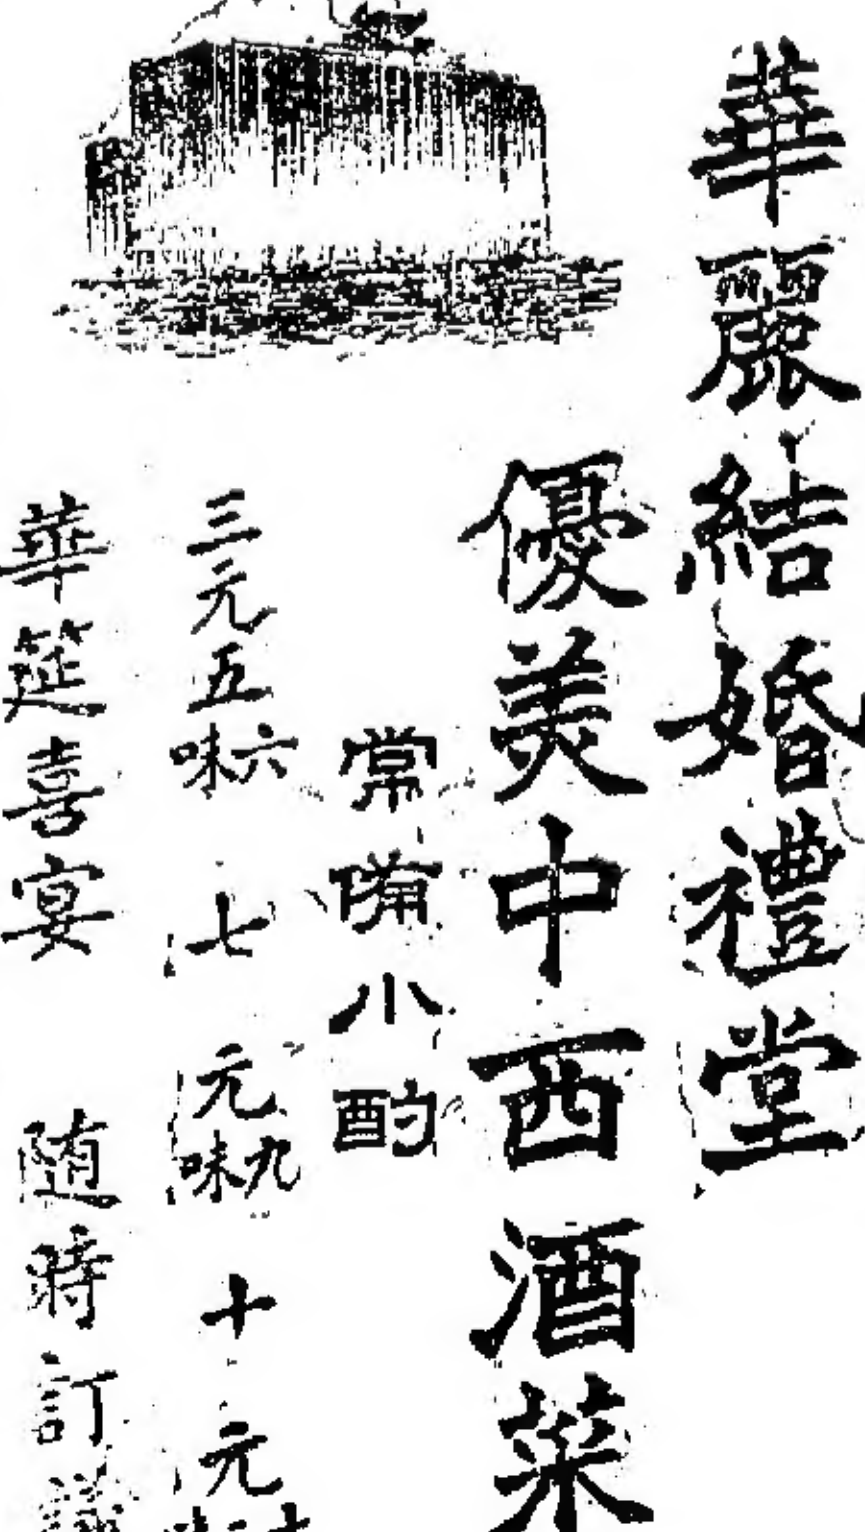 華麗結婚禮堂
優美中西酒菜
常備小酌
三元五六味 七元九味 十元
華筵喜宴 随時訂